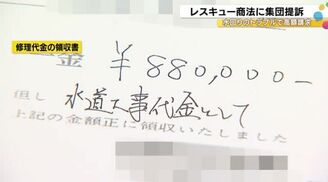 レスキュー商法に集団提訴
水回りのトラブルで高額請求
修理代金の領収書
金 ¥880,000-
但し 水道工事代金として
上記の金額正に領収いたしました